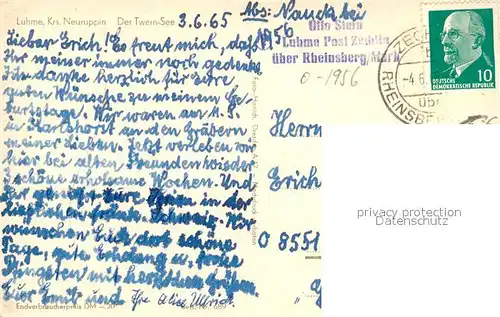 Luhme, Krs. Neuruppin Der Twern-See
3.6.65 Abs: Nauck bei
Otto Stein
Luhme Post Zechlin
über Rheinsberg/Mark
1956
0-1956
Lieber Erich! Es freut mich, daß
Ihr meiner immer noch gedenkt.
Ich danke herzlich für Eure
guten Wünsche zu meinem Ge-
burtstage. Wir waren am 1.5.
in Karlshorst an den Gräbern
meiner Lieben. Jetzt verleben wir
hier bei alten Freunden wieder
schöne erholsame Wochen. Und
Ihr
in der
Schweiz. Wir
wünschen Euch dort schöne
Tage, gute Erholung u. frohe
Pfingsten mit herzlichen Grüßen.
Euer Emil und Ihre Alice Ullrich.
Endverbraucherpreis DM -,20
Herrn
Erich
O 8551
ZEC
-4.6.
RHEINSBE
10
DEUTSCHE
DEMOKRATISCHE REPUBLIK
privacy protection
Datenschutz